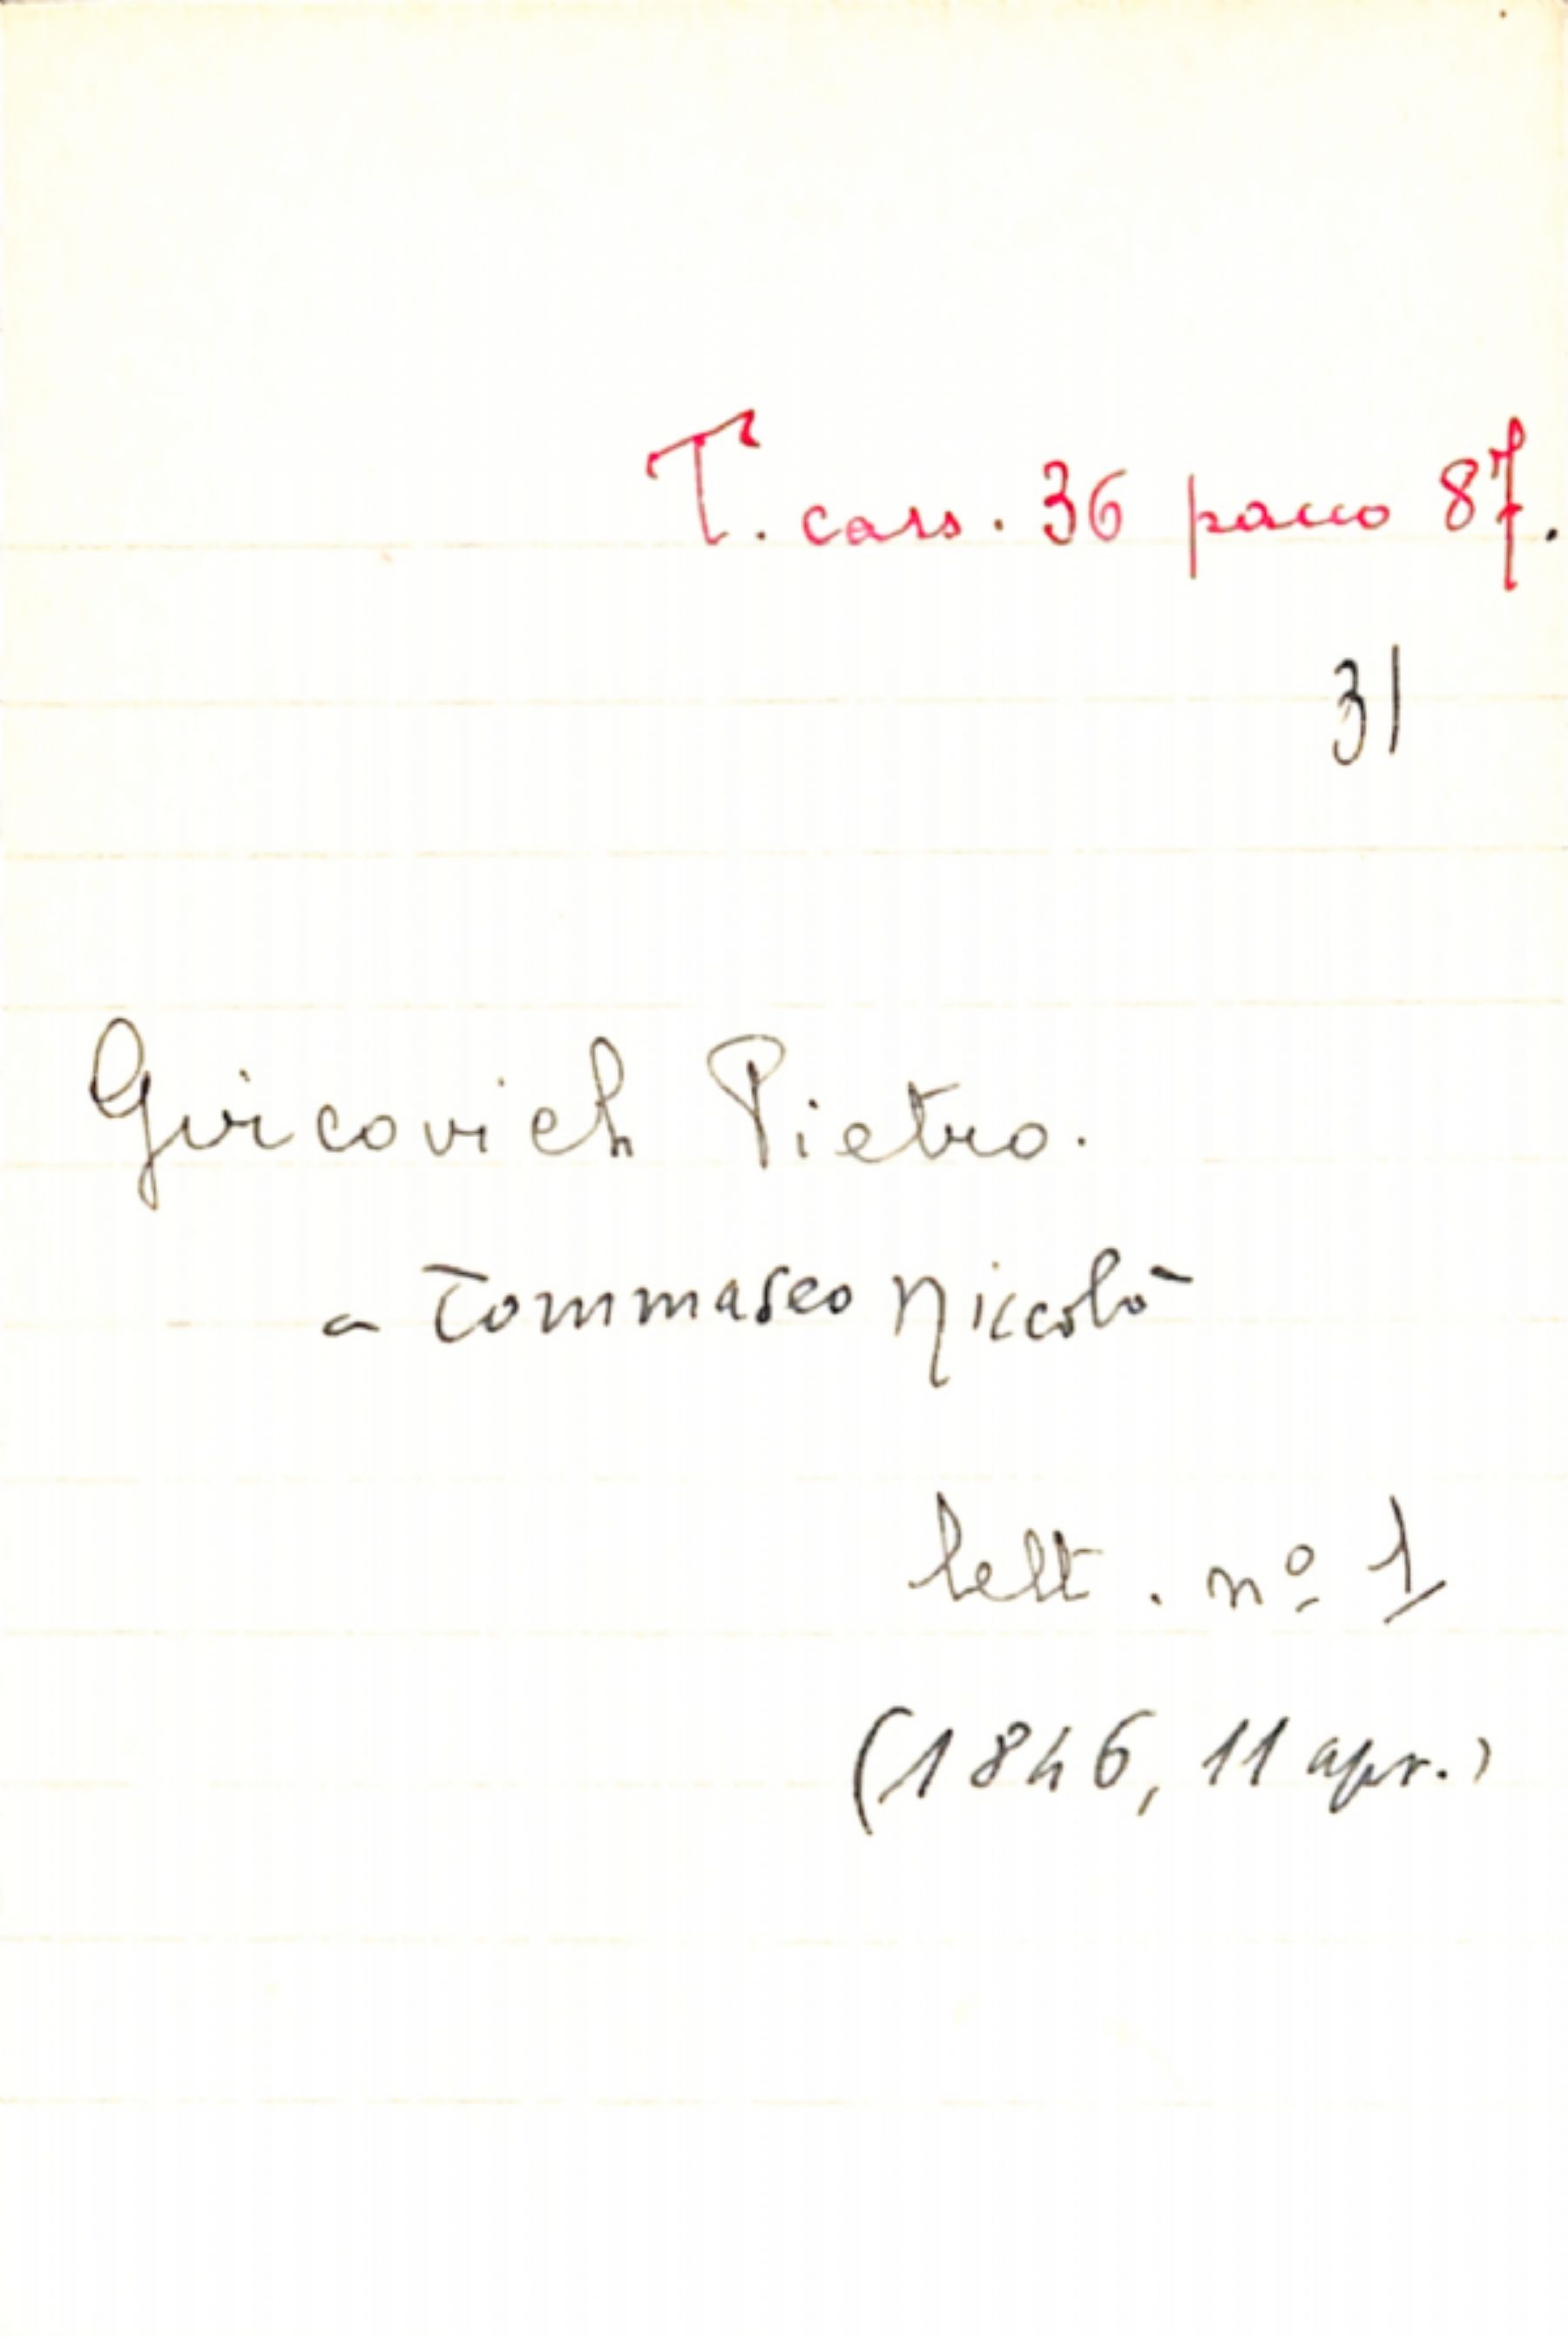 T. cass. 36 pacco 87.
31
Gircovich Pietro.
a Tommaseo Niccolò
lett. nº 1
(1846, 11 apr.)